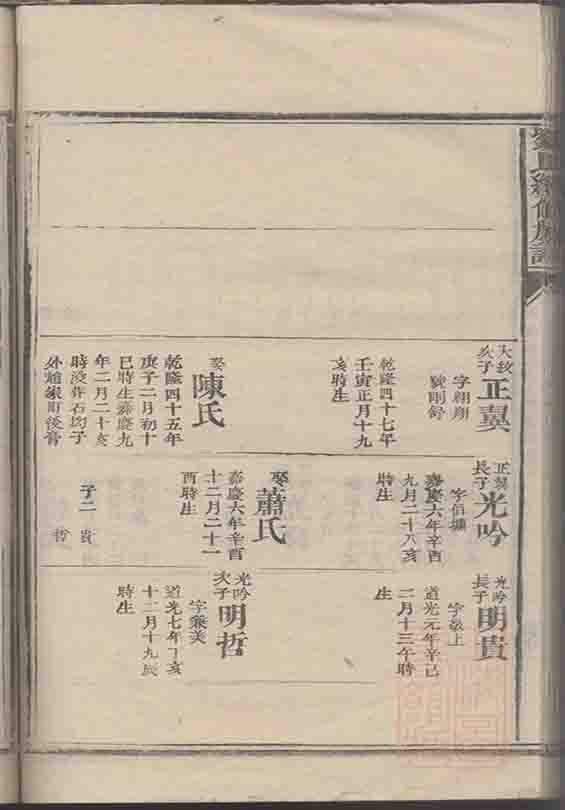 大紋
次子
正冀
字翔翔
號剛舒
乾隆四十七年
壬寅正月十九
亥時生
娶
陳氏
乾隆四十五年
庚子二月初十
巳時生嘉慶九
年二月二十亥
時沒葬石
外
正冀
長子
光吟
字伯壎
嘉慶六年辛酉
九月二十八亥
時生
娶
蕭氏
嘉慶六年辛酉
十二月二十一
酉時生
子二
貴
哲
光吟
長子
明貴
字敬上
道光元年辛巳
二月十三午時
生
光吟
次子
明哲
字兼美
道光七年丁亥
十二月十九辰
時生